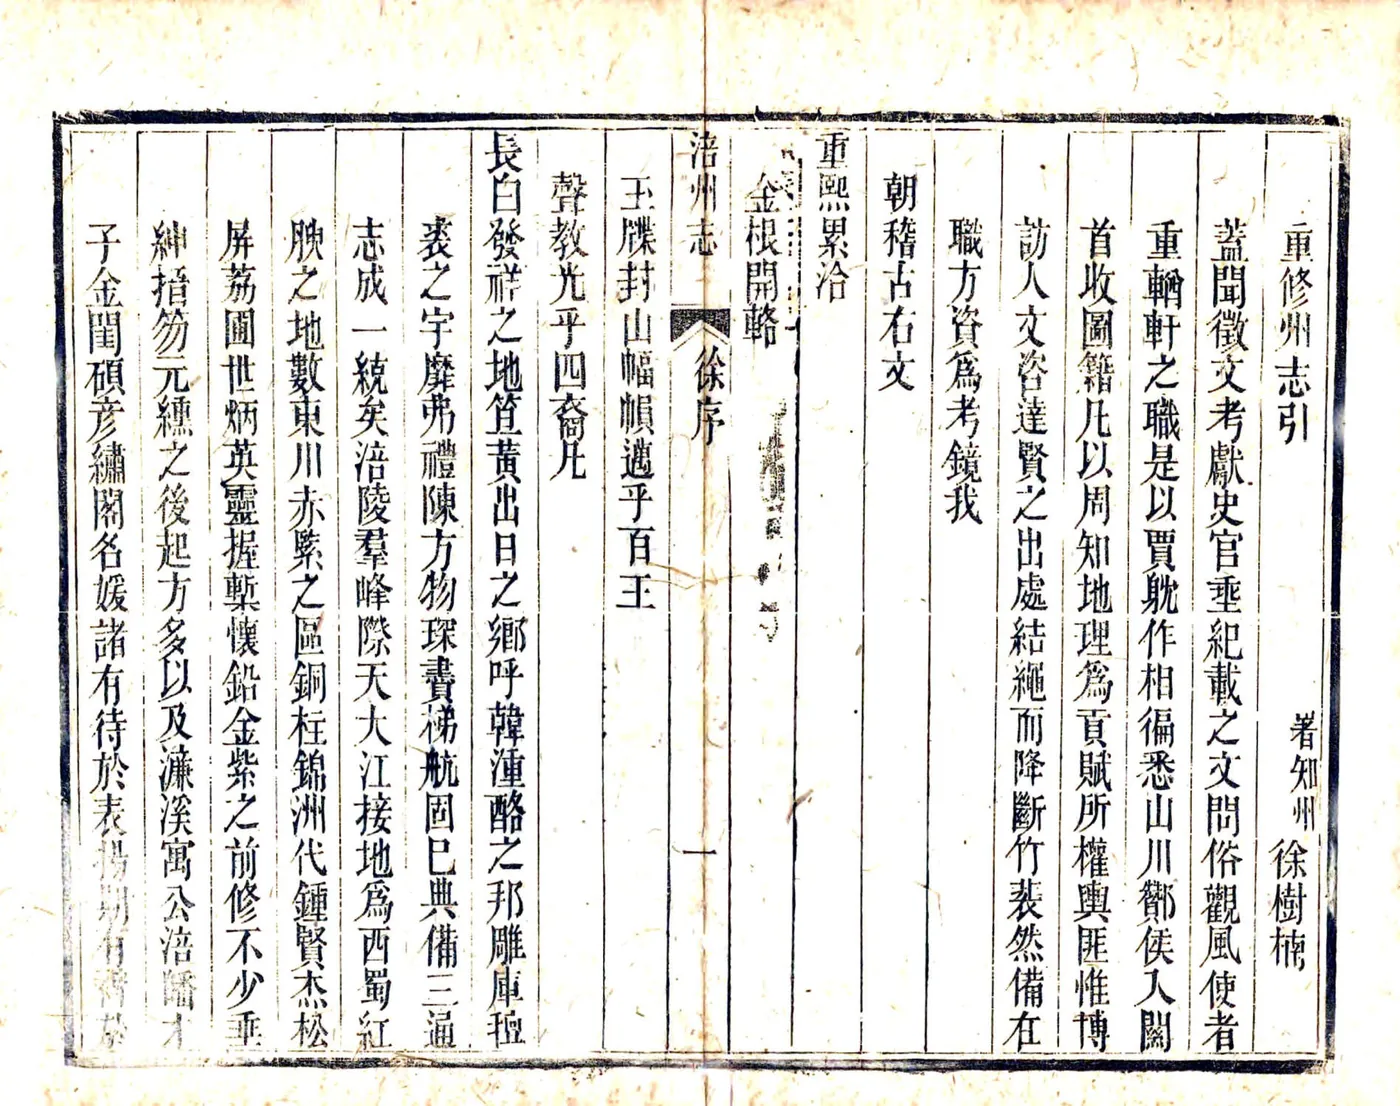 重修州志引
署知州徐樹楠
蓋聞徵文考獻史官垂紀載之文問俗觀風使者
重輶軒之職是以賈躭作相徧悉山川酇侯入關
首收圖籍凡以周知地理爲貢賦所權輿匪惟博
訪人文咨達賢之出處結繩而降斷竹裴然備在
職方資爲考鏡我
朝稽古右文
重熙累洽
金根開輅
涪州志 徐序 一
玉牒封山幅幀邁乎百王
聲教光乎四裔凡
長白發祥之地笡黃出日之鄉呼韓湩酪之邦雕庫
裘之宇靡弗禮陳方物琛賮梯航固已典備三通
志成一統矣涪陵羣峰際天大江接地爲西蜀紅
腴之地數東川赤緊之區銅柱錦洲代鍾賢杰松
屏荔圃世炳英靈握槧懷鉛金紫之前修不少垂
紳搢笏元纁之後起方多以及濂溪寓公涪皤才
子金閨碩彥繡閣名媛諸有待於表揚期有裨於